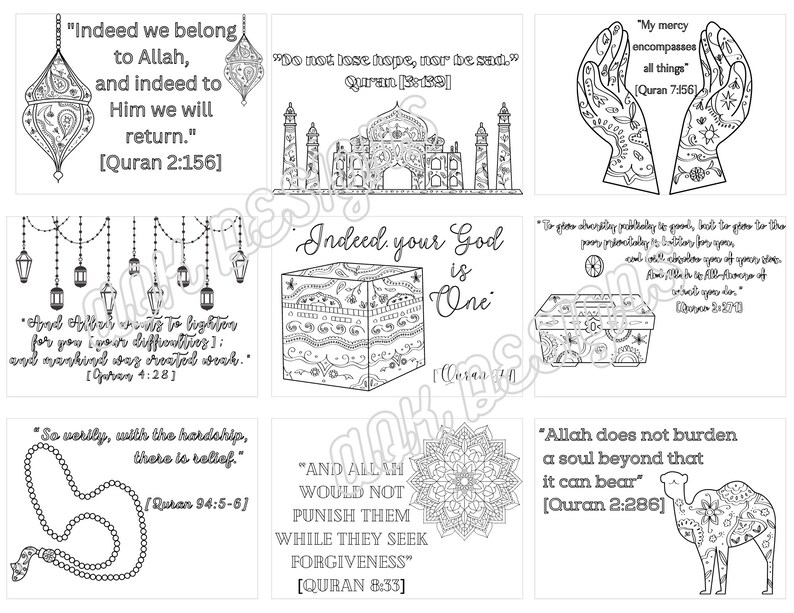 "Indeed we belong
to Allah,
and indeed to
Him we will
return."
[Quran 2:156]
"Do not lose hope, nor be sad."
Quran [3:139]
"My mercy
encompasses
all things"
[Quran 7:156]
"And Allah wants to lighten
for you [your difficulties];
and mankind was created weak."
[Quran 4:28]
"Indeed, your God
is
One"
[Quran
"To give charity publicly is good, but to give to the
poor privately is better for you,
and will absolve you of your sins.
And Allah is All-Aware of
what you do."
[Quran 2:271]
"So verily, with the hardship,
there is relief."
[Quran 94:5-6]
"AND ALLAH
WOULD NOT
PUNISH THEM
WHILE THEY SEEK
FORGIVENESS"
[QURAN 8:33]
"Allah does not burden
a soul beyond that
it can bear"
[Quran 2:286]
DESIGNS